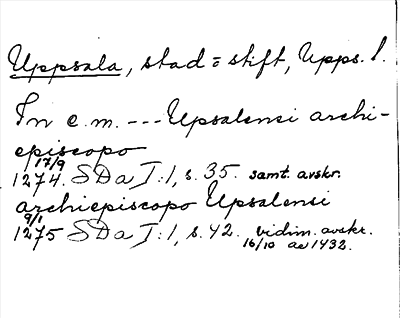 Uppsala, stad o stift, Upps. l.
In e.m. --- Upsalensi archi-
episcopo
17/9
1274. SDa I:1, s. 35. samt. avskr.
archiepiscopo Upsalensi
9/1
1275 SDa I:1, s. 42. vidim. avskr.
16/10 av 1432.